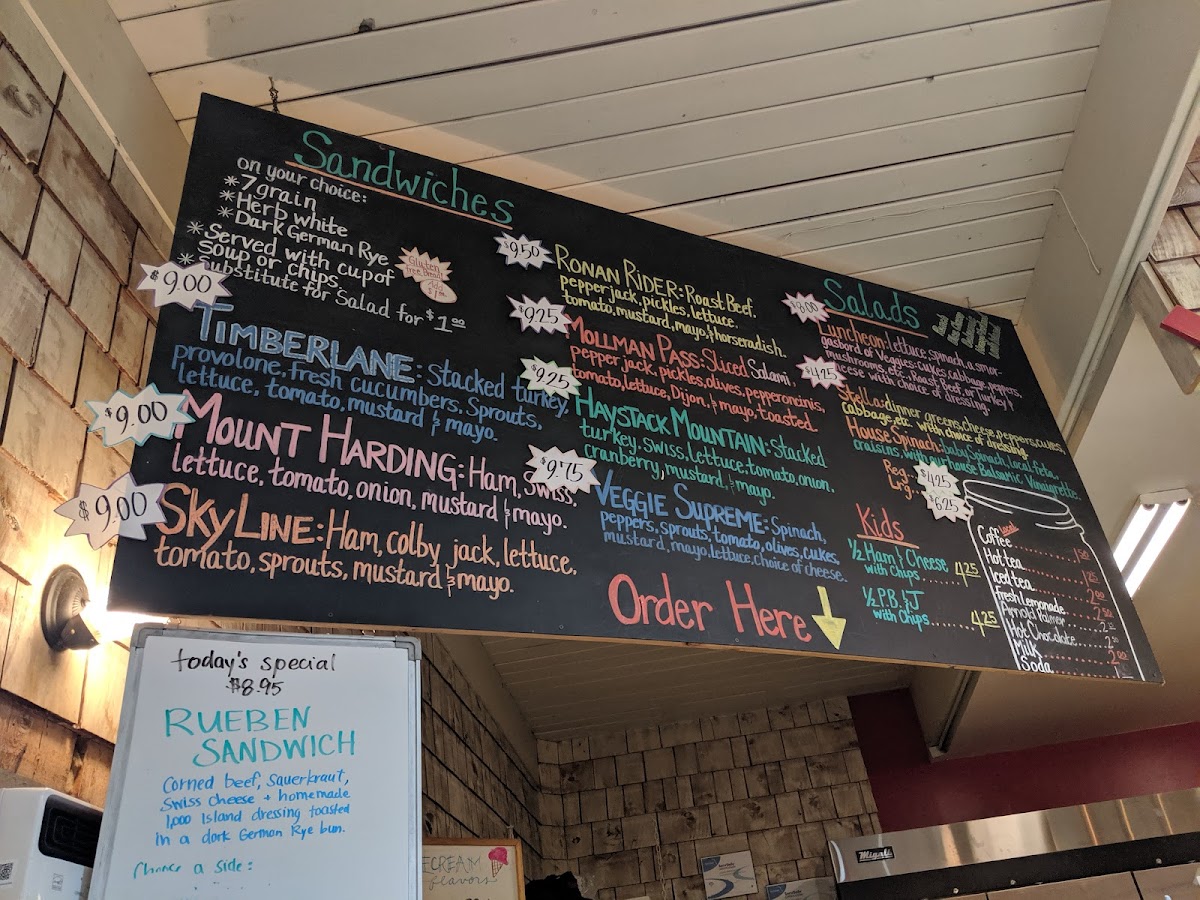 Sandwiches
on your choice:
*7 grain
*Herb white
*Dark German Rye
*Served with cup of
soup or chips.
*Substitute for Salad for $1.00
Gluten
free Bread
Add
$9.00
TIMBERLANE: Stacked turkey,
provolone, Fresh cucumbers, Sprouts,
lettuce, tomato, mustard & mayo.
$9.00
MOUNT HARDING: Ham, Swiss.
lettuce, tomato, onion, mustard & mayo.
$9.00
SKYLINE: Ham, colby jack, lettuce,
tomato, sprouts, mustard & mayo.
$9.50
RONAN RIDER: Roast Beef.
pepper jack, pickles, lettuce.
tomato, mustard, mayo, & horseradish.
$9.25
MOLLMAN PASS: Sliced Salami,
pepper jack, pickles, olives, pepperoncinis,
tomato, lettuce, Dijon, & mayo, toasted.
$9.25
HAYSTACK MOUNTAIN: Stacked
turkey, swiss, lettuce, tomato, onion.
cranberry, mustard, & mayo.
$9.75
VEGGIE SUPREME: Spinach,
peppers, sprouts, tomato, olives, cukes,
mustard, mayo, lettuce, choice of cheese.
Order Here
Salads
$8.00
Luncheon: lettuce, spinach, a smor-
gasbord of Veggies: cukes, cabbage, peppers,
mushrooms, etc. Roast Beef or Turkey &
cheese with choice of dressing.
$4.25
Stella: dinner greens, cheese, peppers, cukes,
cabbage, etc. with choice of dressing.
House Spinach: baby Spinach, local feta,
craisins, with our House Balsamic Vinaigrette.
Reg. 4.25
Lrg. $6.25
Kids
½ Ham & Cheese
with Chips ........ 4.25
½ P.B. & J
with Chips ........ 4.25
Local
Coffee
Hot tea
Iced tea
Fresh Lemonade
Arnold Palmer
Hot Chocolate
Milk
Soda
today's special
$8.95
RUEBEN
SANDWICH
Corned beef, Sauerkraut,
Swiss cheese + homemade
1,000 Island dressing toasted
In a dark German Rye bun.
Choose a side:
ECREAM
flavors
Migali